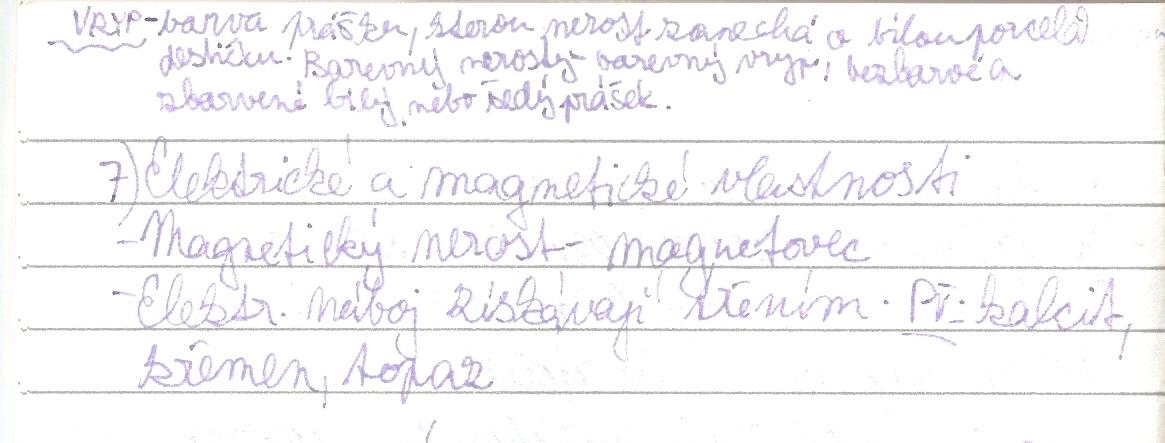 VRYP-barva prášku, kterou nerost zanechá o bílou porcelá
destičku. Barevný nerosty- barevný vryp, bezbarvé a
zbarvené bílý nebo šedý prášek.
7) Elektrické a magnetické vlastnosti
-Magnetický nerost- magnetovec
-Elektr. náboj získávají třením. Př- kalcit,
křemen, topaz